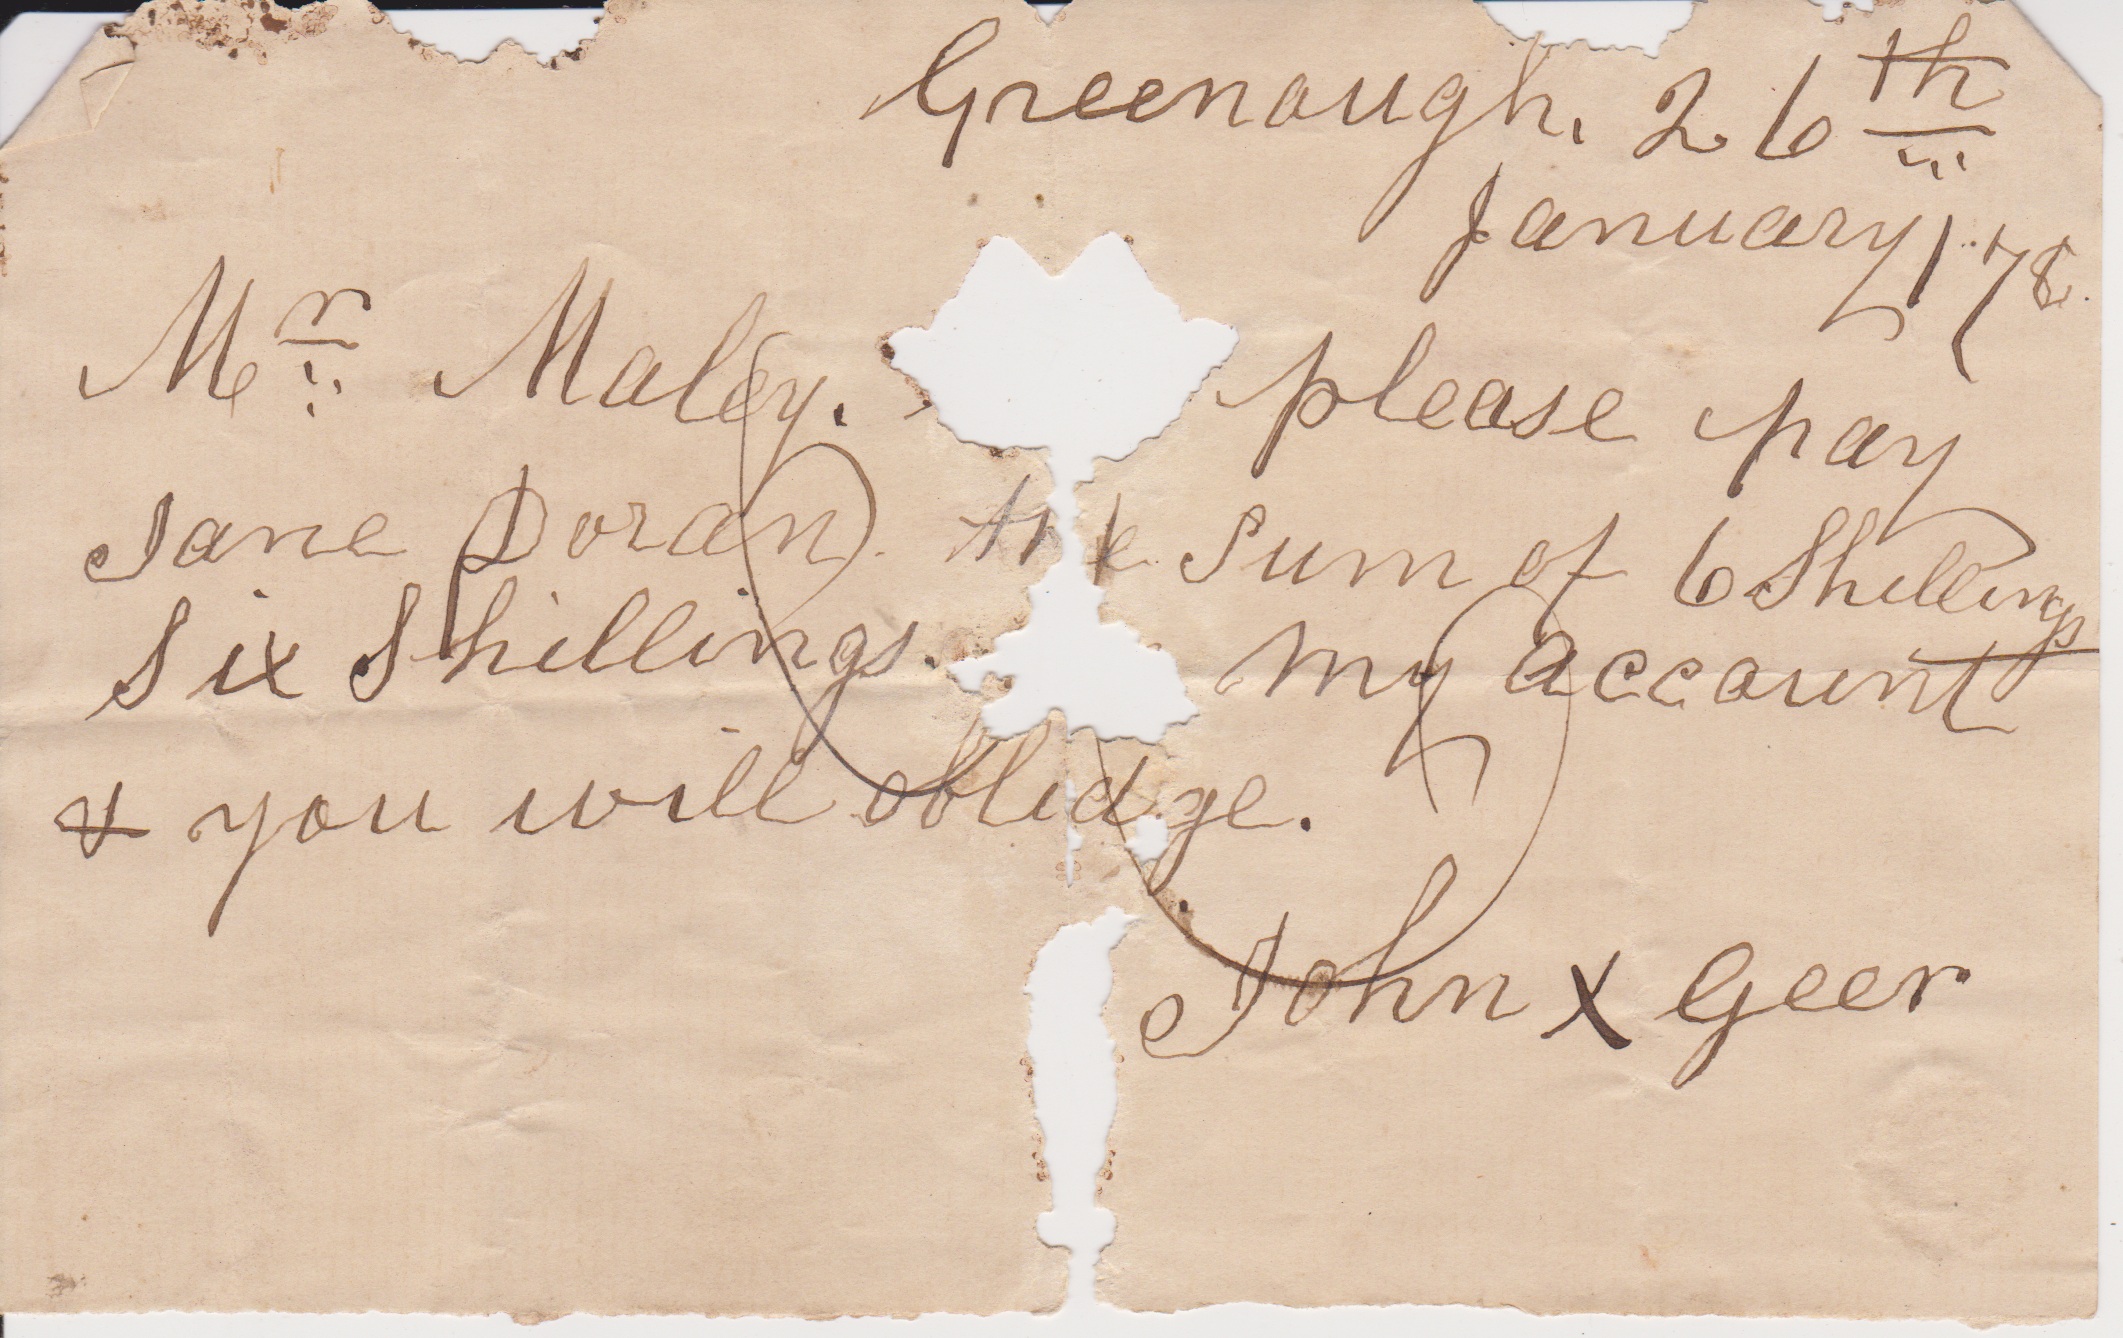 Greenough. 26th
January 1 78
Mr Maley. please pay
Jane Doran. the Sum of 6 Shillings
Six Shillings. My account
& you will oblidge.
John X Geer